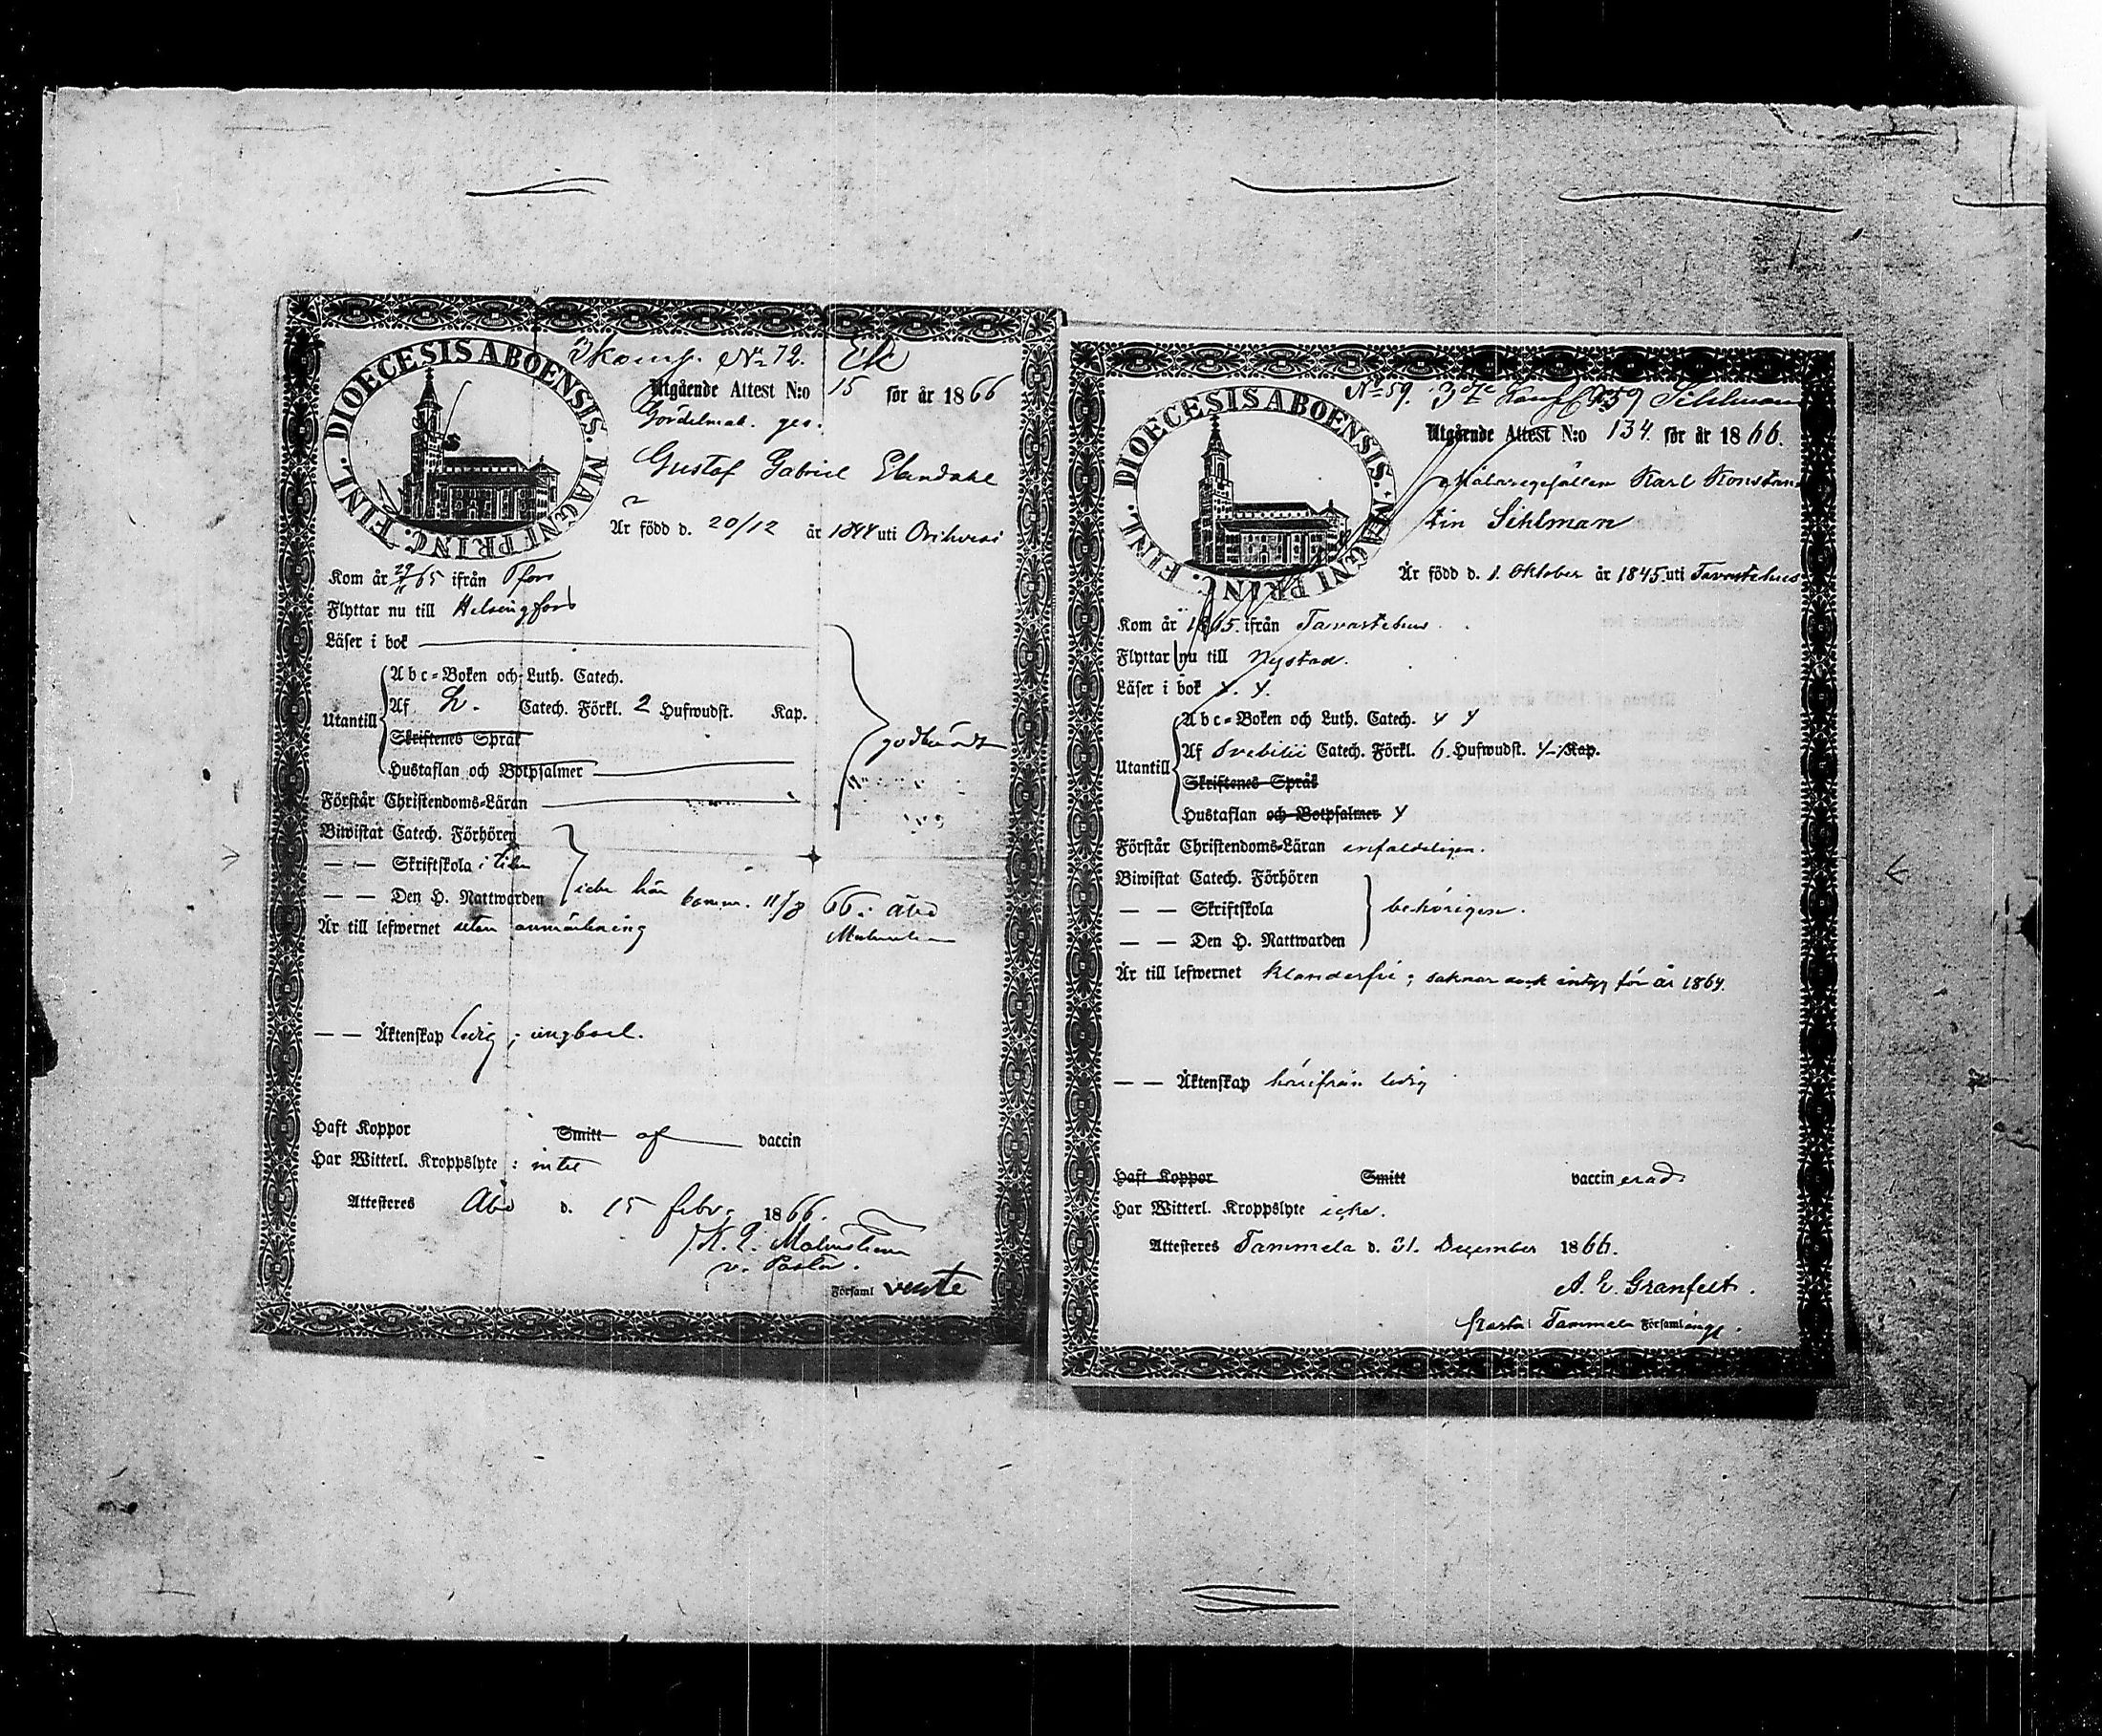 DIOECESIS ABOENSIS. MAGNI PRINC. FINL.
3 komp. No 72. Ek
Utgående Attest N:o 15 för år 1866
Gördelmak. ges.
Gustaf Gabriel Ekendahl
Är född d. 20/12 år 1844 uti Orihvesi
Kom år 65 ifrån Tfors
Flyttar nu till Helsingfors
Läser i bok
Utantill
Abc-Boken och Luth. Catech.
Af L. Catech. Förkl. 2 Hufwudst. Kap.
Skriftenes Språk
Hustaflan och Botpsalmer
Förstår Christendoms-Läran
godkändt
Biwistat Catech. Förhören
— — Skriftskola
— — Den H. Nattwarden
icke här komm. 11/8 66 i Åbo
Malmström
Är till lefwernet utan anmärkning
— — Äktenskap ledig; ungkarl.
Haft Koppor Smitt af vaccin
Har Witterl. Kroppslyte: inte
Attesteres Åbo d. 15 febr. 1866.
Malmström
v. Pastor.
Församl
DIOECESIS ABOENSIS. MAGNI PRINC. FINL.
No 59. 3dje Komp No 59 Sihlman
Utgående Attest N:o 134. för år 1866.
Målaregesällen Karl Konstan
tin Sihlman
Är född d. 1. Oktober år 1845. uti Tavastehus
Kom år 1865. ifrån Tavastehus.
Flyttar nu till Nystad.
Läser i bok y. y.
Utantill
Abc-Boken och Luth. Catech. y y
Af Svebilii Catech. Förkl. 6. Hufwudst. y-y Kap.
Skriftenes Språk
Hustaflan och Botpsalmer y
Förstår Christendoms-Läran enfaldeligen.
Biwistat Catech. Förhören
— — Skriftskola
— — Den H. Nattwarden
behörigen.
Är till lefwernet klanderfri; saknar dock intyg för år 1864.
— — Äktenskap härifrån ledig
Haft Koppor Smitt vaccinerad
Har Witterl. Kroppslyte icke.
Attesteres Tammela d. 31. December 1866.
A. E. Granfelt.
Pastor i Tammela Församling.